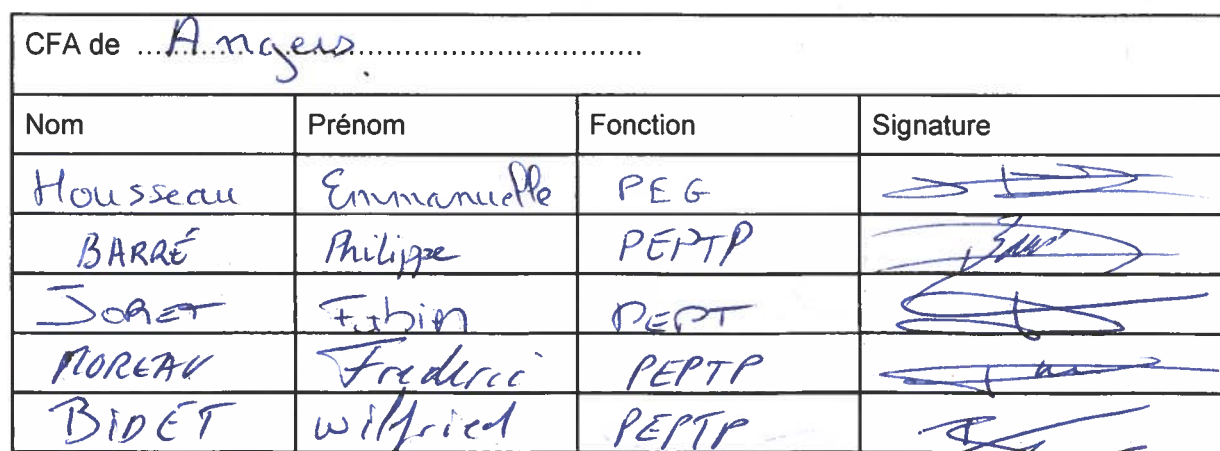 CFA de ...Angers...
Nom Prénom Fonction Signature
Housseau Emmanuelle PEG
BARRÉ Philippe PEPTP
JORET Fabin PEPT
MOREAU Frederic PEPTP
BIDET wilfried PEPTP